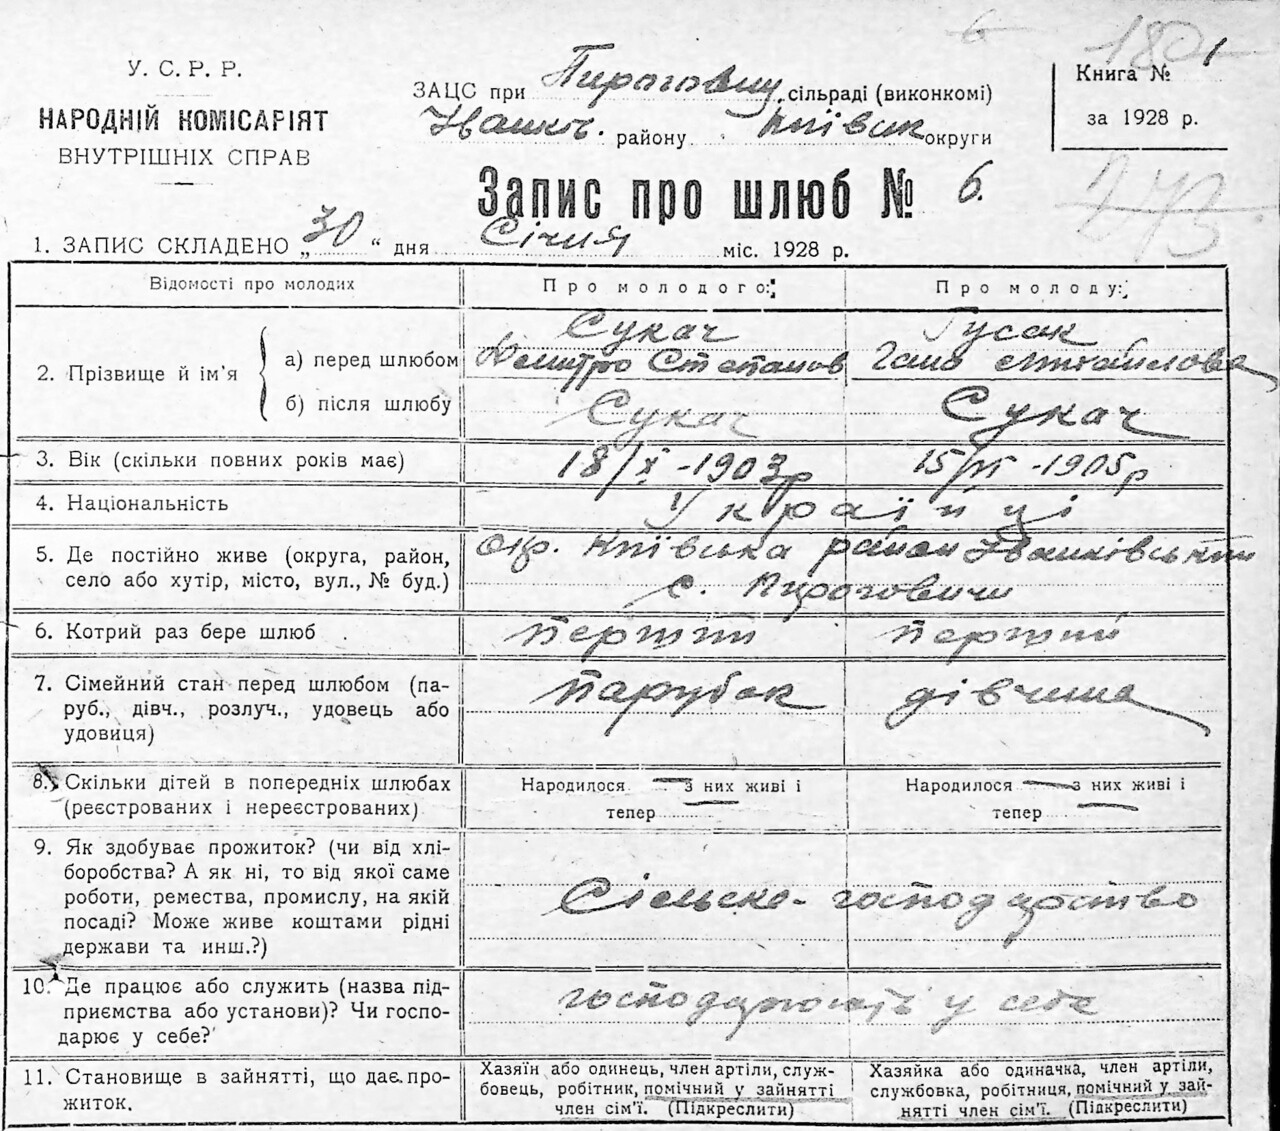 У. С. Р. Р.
НАРОДНІЙ КОМІСАРІЯТ
ВНУТРІШНІХ СПРАВ
ЗАЦС при Пироговиц. сільраді (виконкомі)
Іванків. району Київськ округи
Книга № 1
за 1928 р.
180
273
Запис про шлюб № 6.
1. ЗАПИС СКЛАДЕНО „30" дня Січня міс. 1928 р.
Відомості про молодих
Про молодого:
Про молоду:
2. Прізвище й ім'я
а) перед шлюбом
Сукач
Дмитро Степанов
Гусак
Ганна Михайлова
б) після шлюбу
Сукач
Сукач
3. Вік (скільки повних років має)
18/X -1903р
15/VI -1905р
4. Національність
Українці
5. Де постійно живе (округа, район,
село або хутір, місто, вул., № буд.)
окр. Київська район Іванківський
с. Пироговичи
6. Котрий раз бере шлюб
перший
перший
7. Сімейний стан перед шлюбом (па-
руб., дівч., розлуч., удовець або
удовиця)
парубок
дівчина
8. Скільки дітей в попередніх шлюбах
(реєстрованих і нереєстрованих)
Народилося — з них живі і
тепер —
Народилося — з них живі і
тепер —
9. Як здобуває прожиток? (чи від хлі-
боробства? А як ні, то від якої саме
роботи, ремества, промислу, на якій
посаді? Може живе коштами рідні
держави та инш.?)
Сільске-господарство
10. Де працює або служить (назва під-
приємства або установи)? Чи госпо-
дарює у себе?
господарюють у себе
11. Становище в зайнятті, що дає про-
житок.
Хазяїн або одинець, член артіли, служ-
бовець, робітник, помічний у зайнятті
член сім'ї. (Підкреслити)
Хазяйка або одиначка, член артіли,
службовка, робітниця, помічний у зай-
нятті член сім'ї. (Підкреслити)